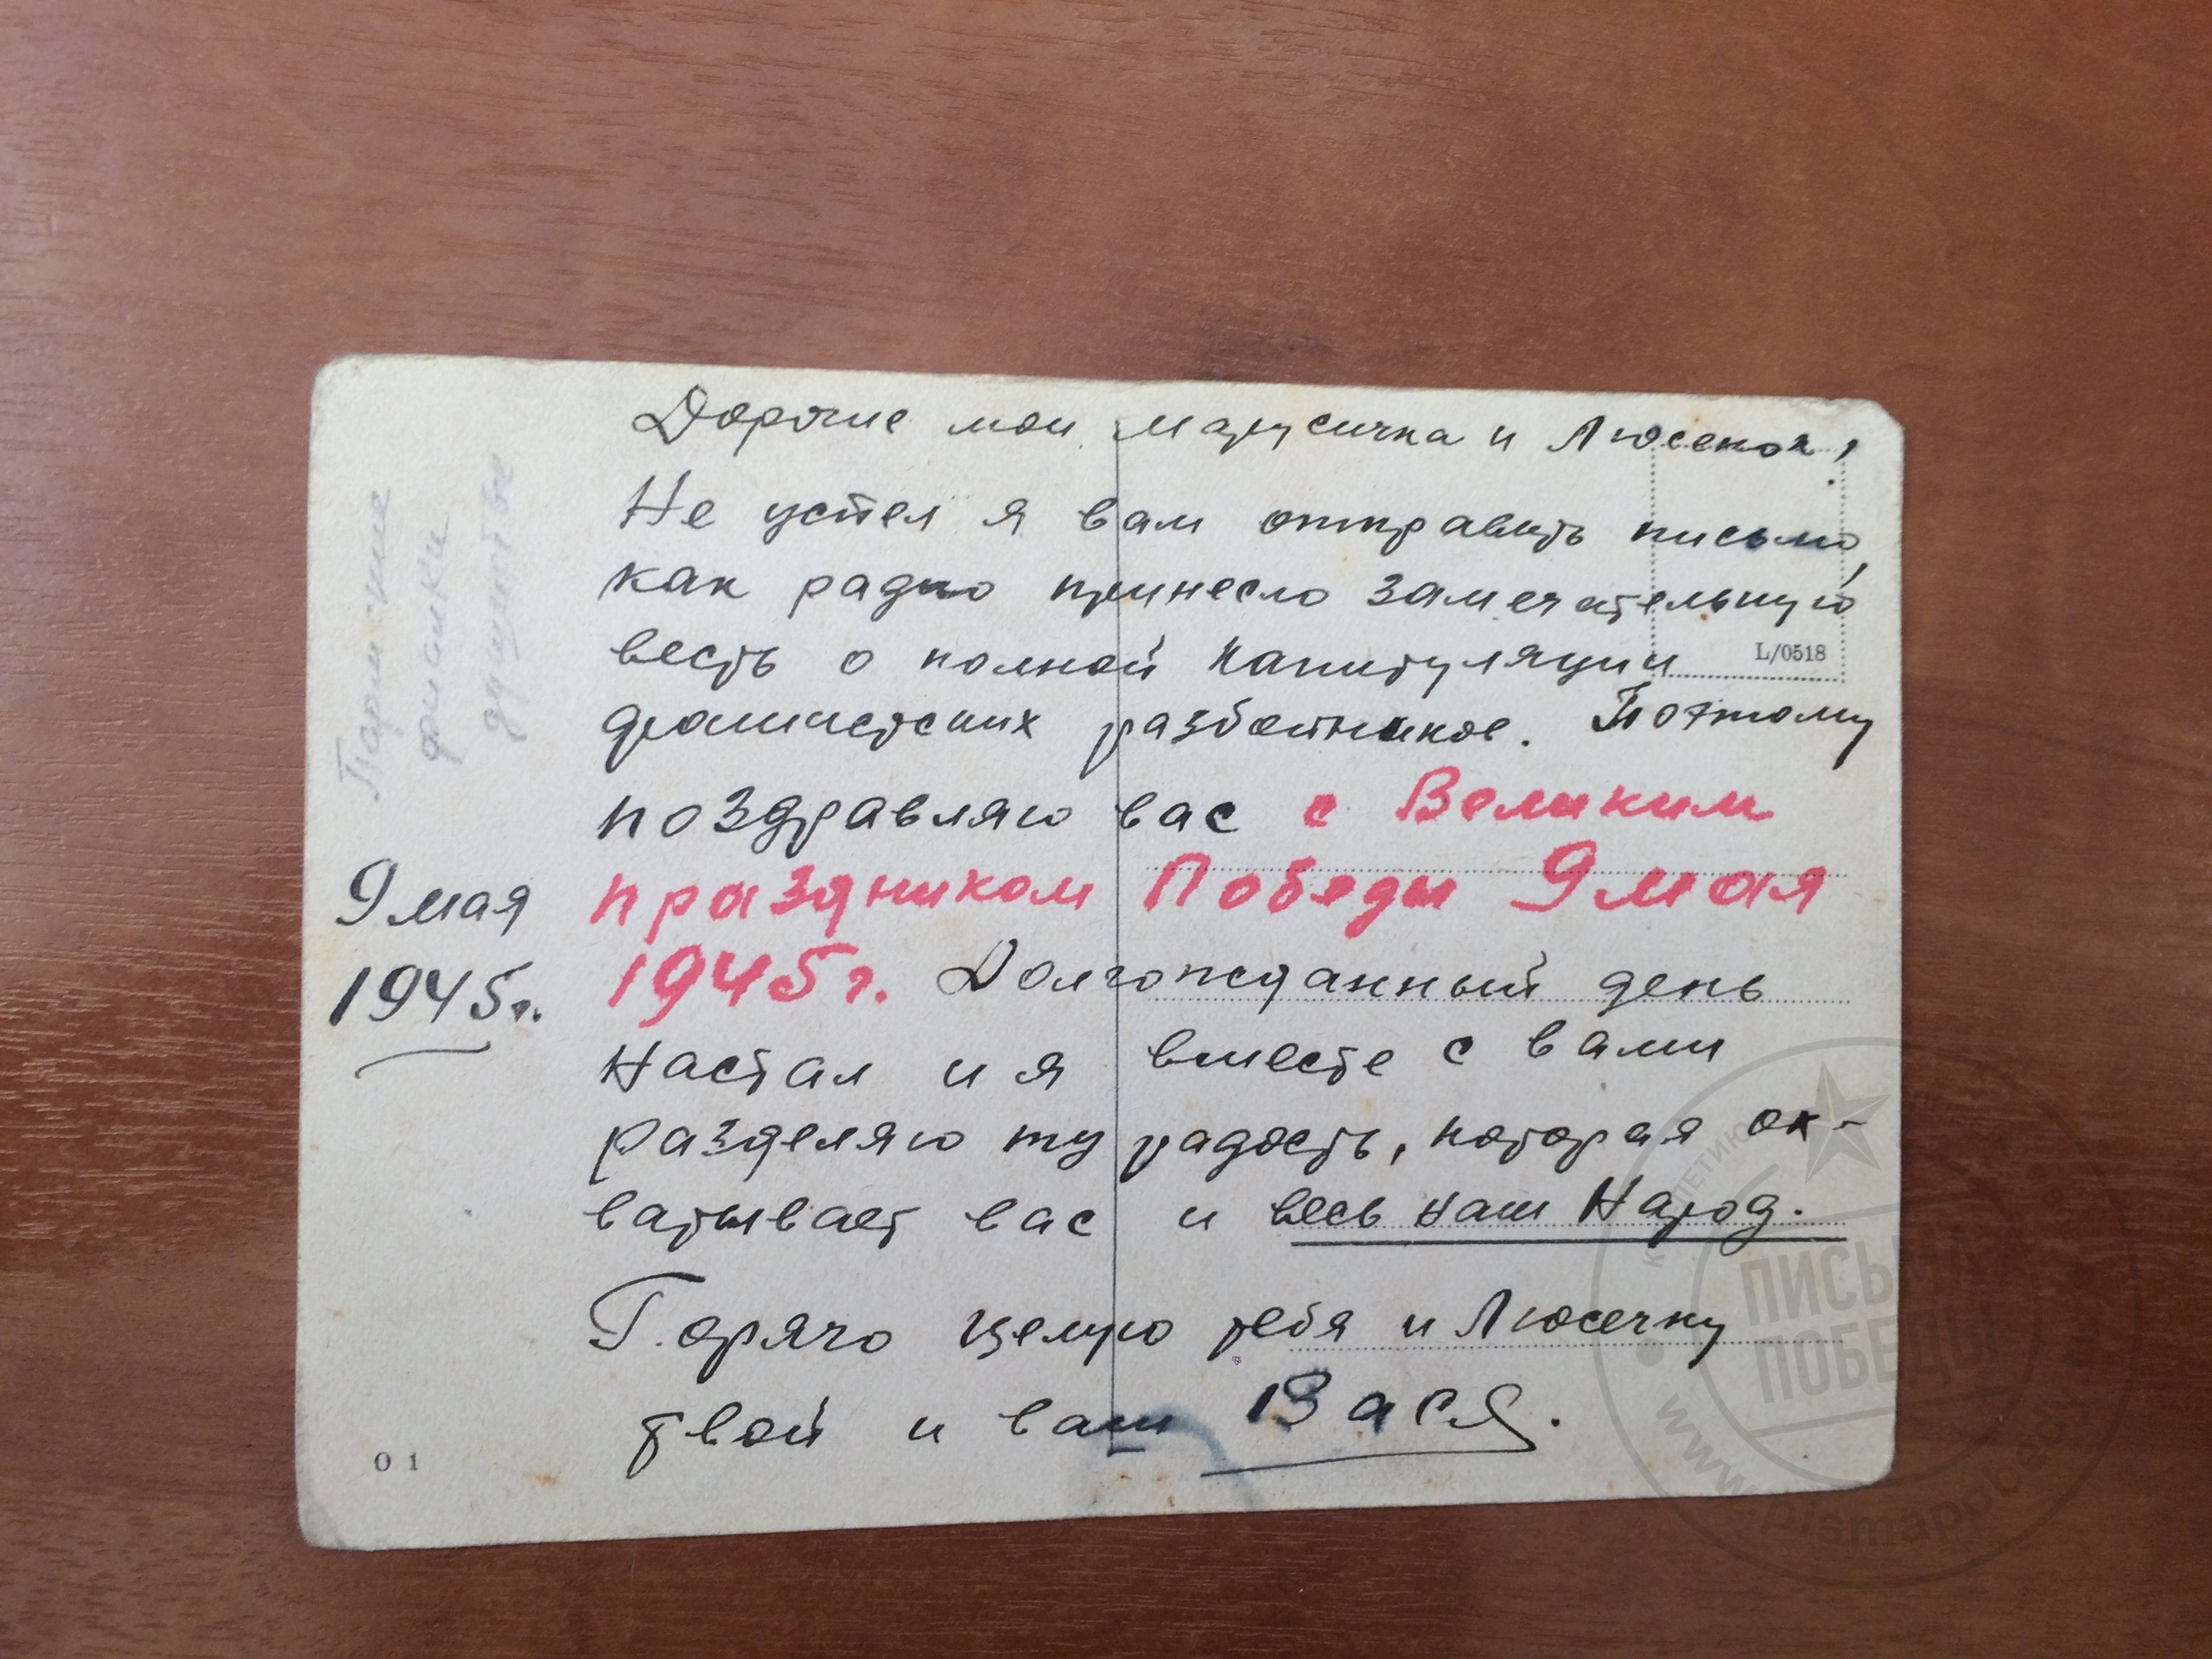 Дорогие мои Марусичка и Люсенок!
Не успел я вам отправить письмо,
как радио принесло замечательную
весть о полной капитуляции
L/0518
фашистских разбойников. Поэтому
поздравляю вас с Великим
праздником Победы 9 мая
1945 г. Долгожданный день
настал и я вместе с вами
разделяю ту радость, которая ох-
ватывает вас и весь наш Народ.
Горячо целую тебя и Люсечку
твой и ваш Вася.
9 мая
1945 г.
Парижские
фиалки
01
ПИСЬМА
ПОБЕДЫ
www.pismapobed